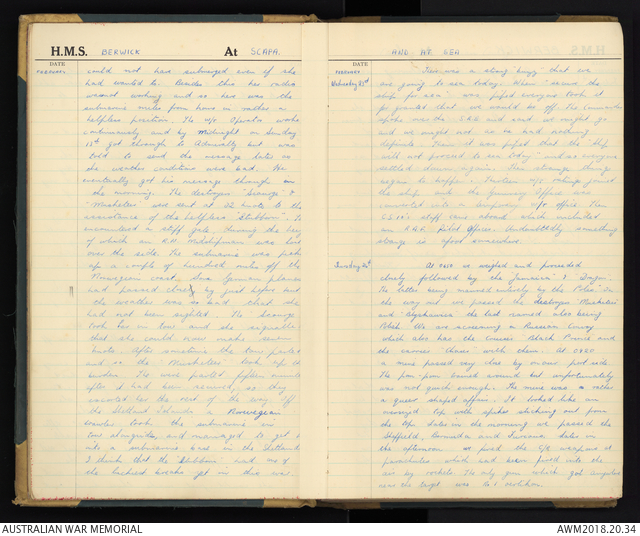 H.M.S. BERWICK At SCAPA.
DATE
FEBRUARY
could not have submerged even if she
had wanted to. Besides this her radio
wasnt working and so here was the
submarine miles from home in rather a
helpless position. The W/T Operator works
continuously and by Midnight on Sunday
got through to Admiralty but was
told to send the message later as
the weather conditions were bad. He
eventually got his message through in
the morning. The destroyers
"Musketeer" were sent at 32 knots to the
assistance of the helpless "Stubborn".
encountered a stiff gale, during the
of which an R.N. Midshipman was lost
over the side. The submarine was picked
up a couple of hundred miles off the
Norwegian coast. German planes
had passed closely by just before but
the weather was so bad that she
had not been sighted. The
took her in tow and she signalled
that she could never make
knots. After sometime the tow parted
and so the "Musketeer" took up the
burden. The wire parted fifteen minutes
after it had been secured, so they
escorted her the rest of the way. Off
the Shetland Islands a Norwegian
took the submarine in
tow alongside, and managed to get
into a submarine base in the Shetlands
I think that the Stubborn must be one of
the luckiest breaks yet in this war.
AND AT SEA.
DATE
FEBRUARY
Wednesday 23rd
There was a strong "buzz" that we
are going to sea today. When "secure the
ship for sea" was piped everyone took it
for granted that we would be off. The Commander
spoke over the S.R.E and said we might go
and we might not as he had nothing
definite. Then it was piped that the "Ship
will not proceed to sea today" and so everyone
settled down again. Then strange things
began to happen. Fourteen W/T ratings joined
the ship and the Gunnery Office was
converted into a temporary W/T office. Then
C.S.10's staff came aboard which included
an R.A.F. Pilot Officer. Undoubtedly something
strange is afoot somewhere.
At 0410 we weighed and proceeded
closely followed by the "Jamaica" & "Dragon".
The latter being manned entirely by the Poles. On
the way out we passed the destroyers "Musketeer"
and "Blyskawica" the last named also being
Polish. We are screening a Russian Convoy
which also has the cruiser Black Prince and
the carrier "Chaser" with them. At 0920
a mine passed very close by on our port side.
The pom-pom swished around but unfortunately
was not quick enough. The mine was a rather
a queer shaped affair. It looked like an
top with spikes sticking out from
the top. Later in the morning we passed the
Sheffield, and Later in
the afternoon we fired the weapons at
parachutes which had been fired into the
air by rockets. The only gun which got anywhere
near the target was No 2 oerlikon.
AUSTRALIAN WAR MEMORIAL
AWM2018.20.34